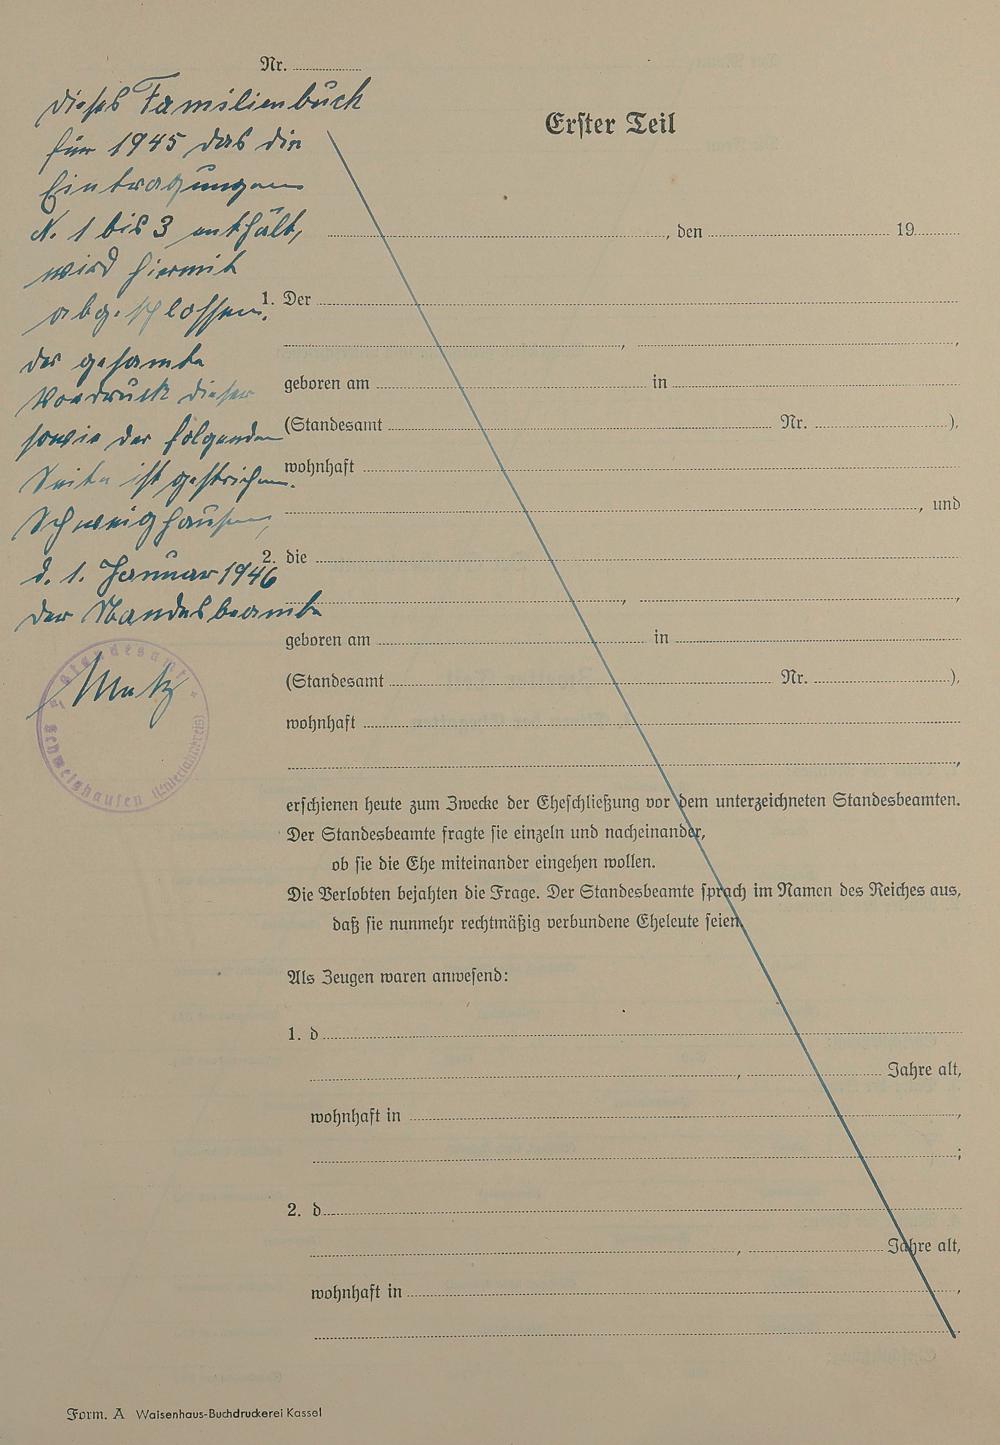 Nr.
Dieses Familienbuch
für 1945 das die
Eintragungen
N. 1 bis 3 enthält,
wird hiermit
abgeschlossen.
der gesamte
Vordruck dieser
sowie der folgenden
Seite ist gestrichen.
Schweighausen,
d. 1. Januar 1946
der Standesbeamte
Standesamt
Schweighausen (Unterlahnkreis)
Erster Teil
, den 19
1. Der
, ,
geboren am in
(Standesamt Nr. ),
wohnhaft
, und
2. die
, ,
geboren am in
(Standesamt Nr. ),
wohnhaft
,
erschienen heute zum Zwecke der Eheschließung vor dem unterzeichneten Standesbeamten.
Der Standesbeamte fragte sie einzeln und nacheinander,
ob sie die Ehe miteinander eingehen wollen.
Die Verlobten bejahten die Frage. Der Standesbeamte sprach im Namen des Reiches aus,
daß sie nunmehr rechtmäßig verbundene Eheleute seien.
Als Zeugen waren anwesend:
1. d
, Jahre alt,
wohnhaft in ,
;
2. d
, Jahre alt,
wohnhaft in ,
.
Form. A Waisenhaus-Buchdruckerei Kassel